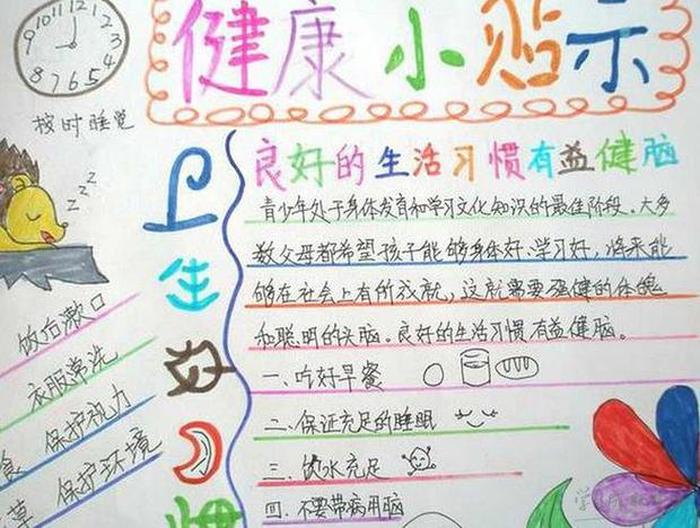 健康小贴士
11 12 1
10 2
9 3
8 4
7 6 5
按时睡觉
z z z
卫生好习惯
良好的生活习惯有益健脑
青少年处于身体发育和学习文化知识的最佳阶段。大多
数父母都希望孩子能够身体好、学习好，将来能
够在社会上有所成就，这就需要强健的体魄
和聪明的头脑。良好的生活习惯有益健脑。
一、吃好早餐
二、保证充足的睡眠
三、饮水充足
四、不要带病用脑
饭后漱口
衣服常洗
食 保护视力
草 保护环境